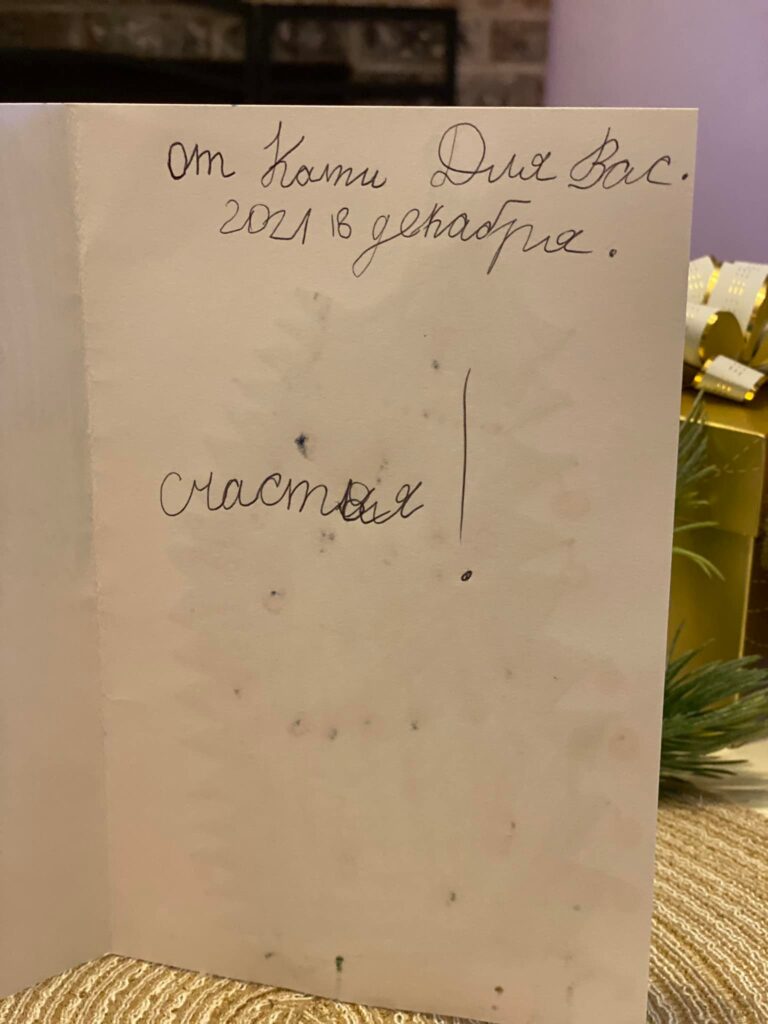 от Кати Для Вас.
2021 в декабря.
счастья!